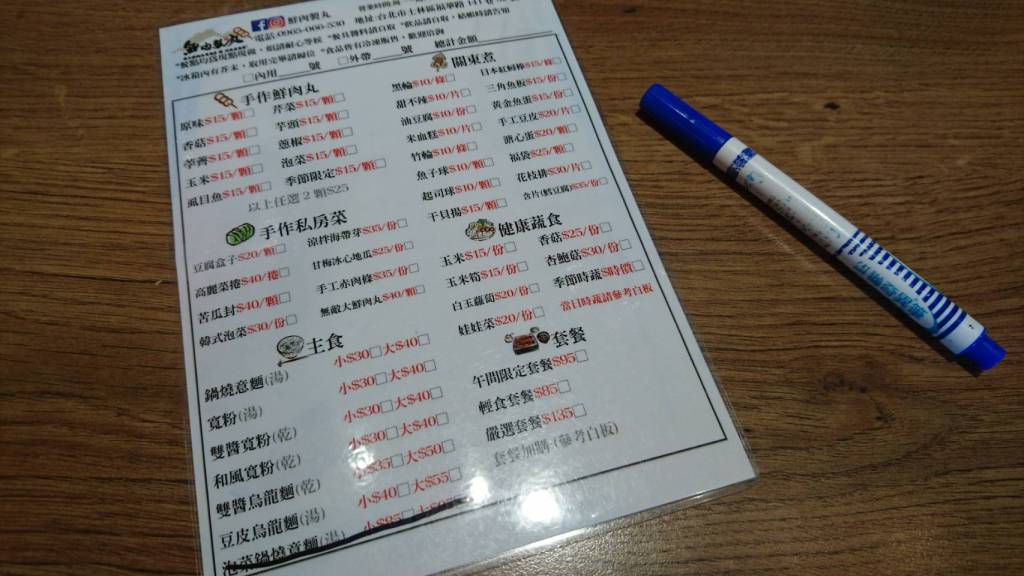 鮮肉製丸
電話:0965-060-530 地址:台北市士林區福華路
*餐點均為現點現做，煩請耐心等候 *餐具醬料請自取 *飲品請自取，結帳時請告知
*冰箱內有芥末，取用完畢請歸位 *食品皆有冷凍販售，歡迎洽詢
□內用 號 □外帶 號 總計金額
手作鮮肉丸
原味$15/顆□ 芹菜$15/顆□
香菇$15/顆□ 芋頭$15/顆□
荸薺$15/顆□ 蔥椒$15/顆□
玉米$15/顆□ 泡菜$15/顆□
虱目魚$15/顆□ 季節限定$15/顆□
以上任選 2 顆$25
關東煮
黑輪$10/條□ 日本紅蟳棒$15/條□
甜不辣$10/片□ 三角魚板$15/片□
油豆腐$10/份□ 黃金魚蛋$15/份□
米血糕$10/片□ 手工豆皮$20/片□
竹輪$10/條□ 溏心蛋$20/顆□
魚子球$10/顆□ 福袋$25/顆□
起司球$10/顆□ 花枝排$30/片□
干貝揚$15/顆□ 含片(鱈豆腐)$35/份□
手作私房菜
豆腐盒子$20/顆□ 涼拌海帶芽$35/份□
高麗菜捲$40/捲□ 甘梅冰心地瓜$25/份□
苦瓜封$40/顆□ 手工赤肉條$35/份□
韓式泡菜$30/份□ 無敵大鮮肉丸$40/顆□
健康蔬食
玉米$15/份□ 香菇$25/份□
玉米筍$15/份□ 杏鮑菇$30/份□
白玉蘿蔔$20/份□ 季節時蔬$時價□
娃娃菜$20/份□ 當日時蔬請參考白板
主食
鍋燒意麵(湯) 小$30□大$40□
寬粉(湯) 小$30□大$40□
雙醬寬粉(乾) 小$30□大$40□
和風寬粉(乾) 小$30□大$40□
雙醬烏龍麵(乾) 小$35□大$50□
豆皮烏龍麵(湯) 小$40□大$55□
泡菜鍋燒意麵(湯)
套餐
午間限定套餐$95□
輕食套餐$85□
嚴選套餐$135□
套餐加購 (參考白板)